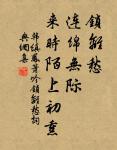 鎖離愁
連綿無際
來時陌上初熏
韓縝鳳簫吟鎖離愁詞
與爾集